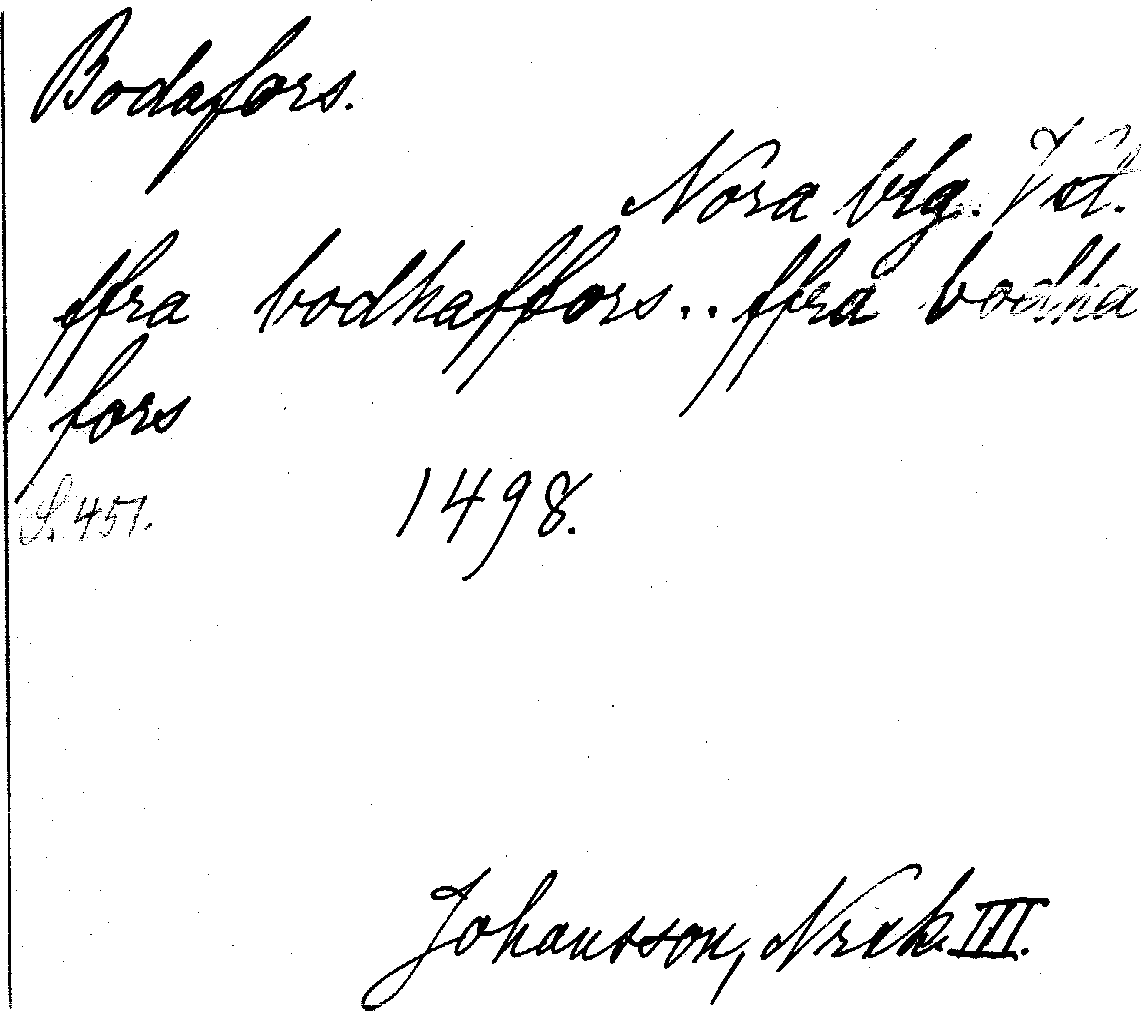 Bodafors.
Nora btg. Vstl.
ffra bodhaffors.. ffra bodha
fors
S. 451. 1498.
Johansson, Nrkk. III.